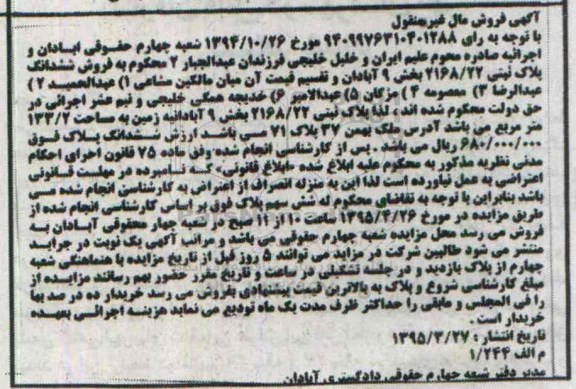 آگهی فروش مال غیرمنقول
با توجه به رای ۹۴۰۹۹۷۶۳۱۰۴۰۱۲۸۸ مورخ ۱۳۹۴/۱۰/۲۶ شعبه چهارم حقوقی آبادان و
اجرائیه صادره محوم علیم ایران و خلیل خلیجی فرزندان عبدالجبار ۲ محکوم به فروش ششدانگ
پلاک ثبتی ۲۱۶۸/۲۲ بخش ۹ آبادان و تقسیم قیمت آن میان مالکین مشاعی ۱) عبدالحمید ۲)
عبدالرضا ۳) معصومه ۴) مژگان ۵) عبدالامیر ۶) خدیجه همگی خلیجی و نیم عشر اجرائی در
حق دولت محکوم شده اند، لذا پلاک ثبتی ۲۱۶۸/۲۲ بخش ۹ آبادانبه زمین به مساحت ۱۳۳/۲
متر مربع می باشد آدرس ملک بهمن ۳۷ پلاک ۷۱ می باشد ارزش ششدانگ پلاک فوق
۶۸۰/۰۰۰/۰۰۰ ریال می باشد . پس از کارشناسی انجام شده وفق ماده ۷۵ قانون اجرای احکام
مدنی نظریه مذکور به محکوم علیه ابلاغ شده «ابلاغ قانونی» که نامبرده در مهلت قانونی
اعتراضی به عمل نیاورده است لذا این به منزله انصراف از اعتراض به کارشناسی انجام شده می
باشد بنابراین با توجه به تقاضای محکوم له شش سهم پلاک فوق بر اساس کارشناسی انجام شده از
طریق مزایده در مورخ ۱۳۹۵/۴/۲۶ ساعت ۱۰ از ۱۱ صبح در شعبه چهار حقوقی آبادان به
فروش می رسد محل مزایده شعبه چهارم حقوقی می باشد و مراتب آگهی یک نوبت در جراید
منتشر می شود طالبین شرکت در مزاید می توانند ۵ روز قبل از تاریخ مزایده با هماهنگی شعبه
چهارم از پلاک بازدید و در جلسه تشکیلی در ساعت و تاریخ مقرر حضور بهم رسانند مزایده از
مبلغ کارشناسی شروع و پلاک به بالاترین قیمت پیشنهادی بفروش می رسد خریدار ده در صد بها
را فی المجلس و مابقی را حداکثر ظرف مدت یک ماه تودیع می نماید هزینه اجرائی بعهده
خریدار است .
تاریخ انتشار : ۱۳۹۵/۳/۲۷
م الف ۱/۲۴۴
مدیر دفتر شعبه چهارم حقوقی دادگستری آبادان